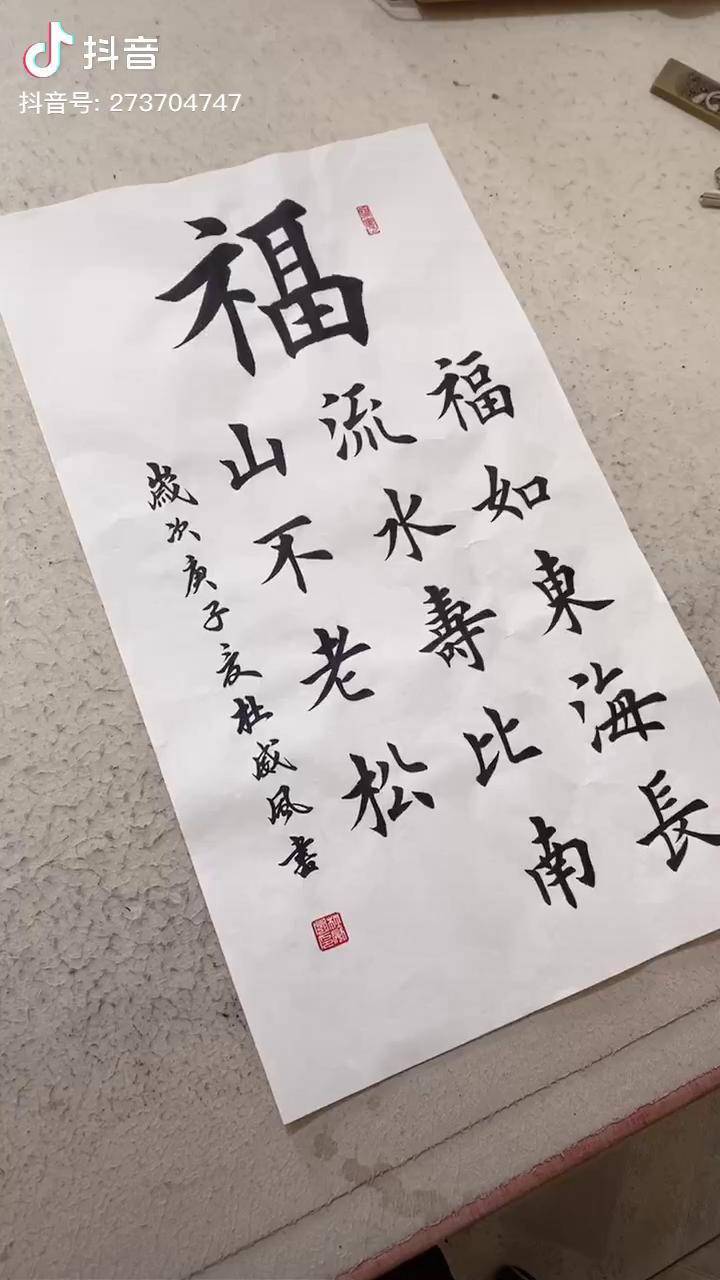 抖音
抖音号: 273704747
福
福如東海長
流水壽比南
山不老松
歲次庚子夏杜威风書